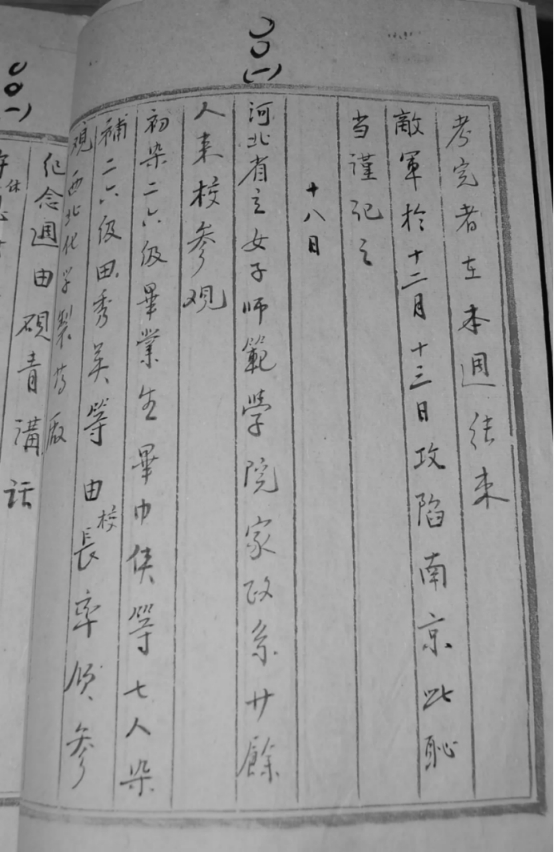 考完者在本週结束
敵軍於十二月十三日攻陷南京此恥
当谨记之
十八日
河北省立女子师範学院家政系廿餘
人来校参观
初染二六级畢業生畢巾侠等七人染
補二六级田秀英等由校長率领参
观西北化学製革厰
纪念週由砚青講话